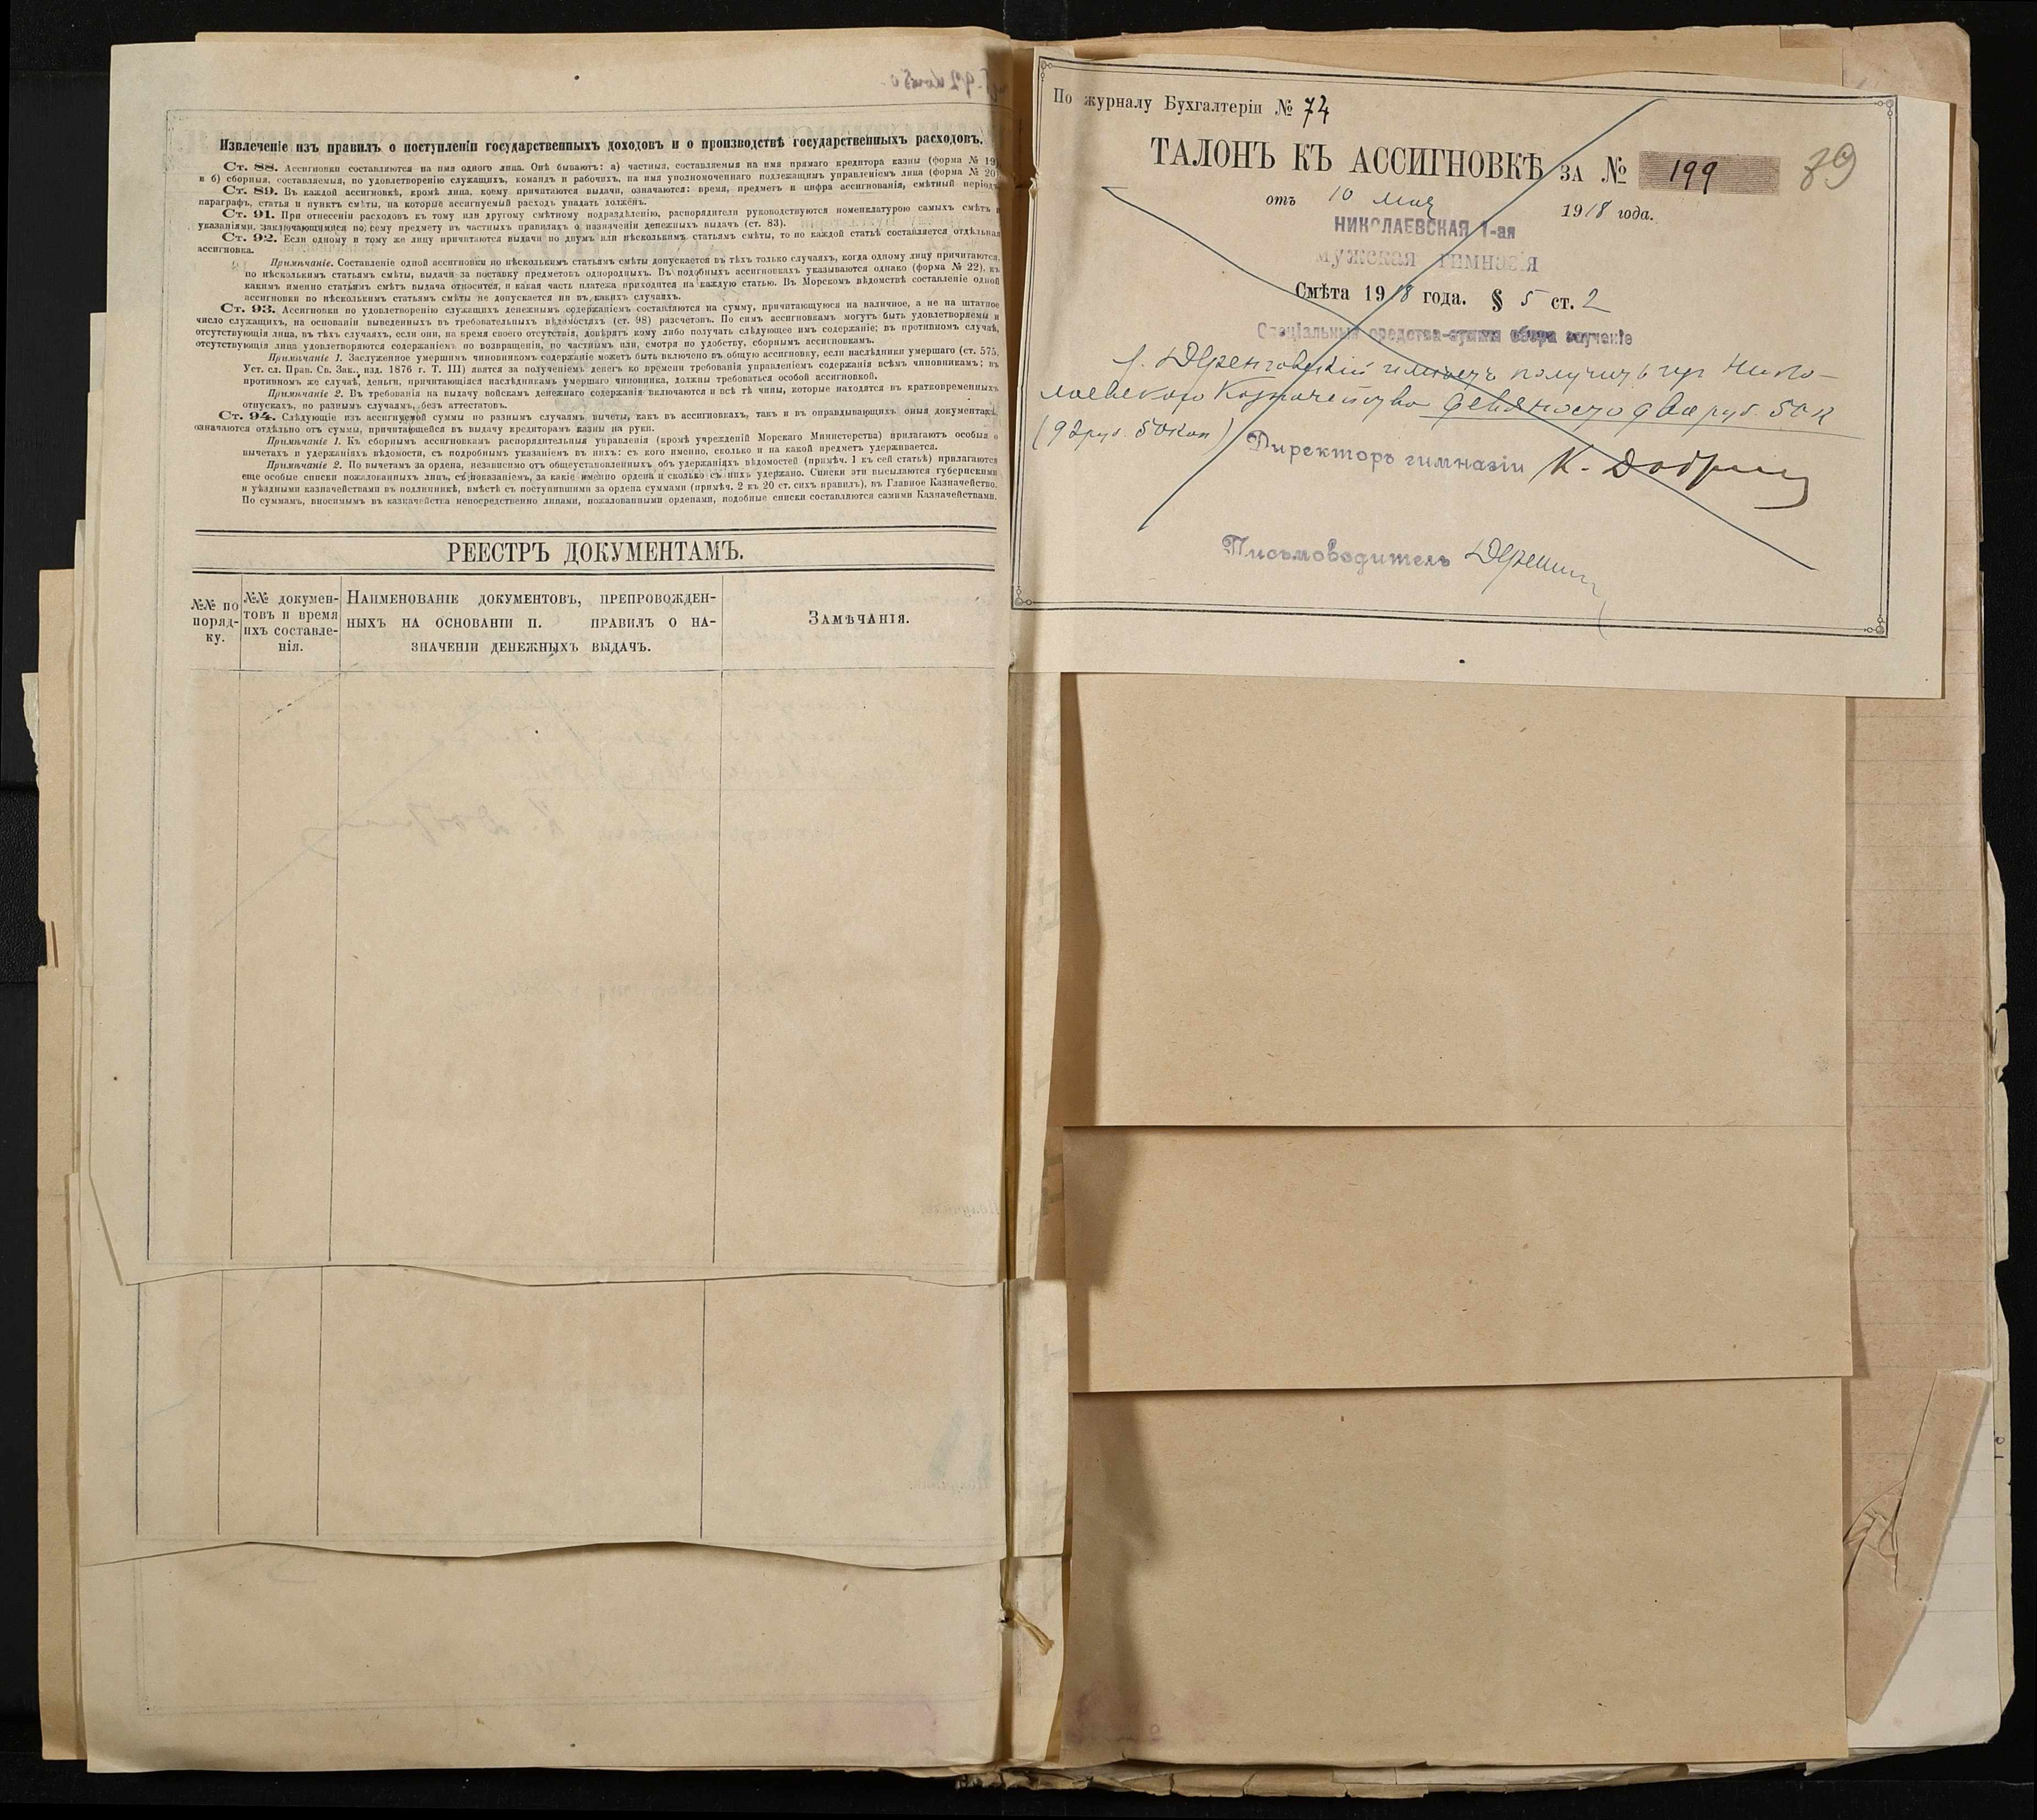 Извлеченіе изъ правилъ о поступленіи государственныхъ доходовъ и о производствѣ государственныхъ расходовъ.
Ст. 88. Ассигновки составляются на имя одного лица. Онѣ бываютъ: а) частныя, составляемыя на имя прямаго кредитора казны (форма № 19)
и б) сборныя, составляемыя, по удовлетворенію служащихъ, командъ и рабочихъ, на имя уполномоченнаго подлежащимъ управленіемъ лица (форма № 20)
Ст. 89. Въ каждой ассигновкѣ, кромѣ лица, коему причитаются выдачи, означаются: время, предметъ и цифра ассигнованія, смѣтный періодъ
параграфъ, статья и пунктъ смѣты, на которые ассигнуемый расходъ упадать долженъ.
Ст. 91. При отнесеніи расходовъ къ тому или другому смѣтному подраздѣленію, распорядители руководствуются номенклатурою самыхъ смѣтъ и
указаніями, заключающимися по сему предмету въ частныхъ правилахъ о назначеніи денежныхъ выдачъ (ст. 83).
Ст. 92. Если одному и тому же лицу причитаются выдачи по двумъ или нѣсколькимъ статьямъ смѣты, то по каждой статьѣ составляется отдѣльная
ассигновка.
Примѣчаніе. Составленіе одной ассигновки по нѣсколькимъ статьямъ смѣты допускается въ тѣхъ только случаяхъ, когда одному лицу причитаются,
по нѣсколькимъ статьямъ смѣты, выдачи за поставку предметовъ однородныхъ. Въ подобныхъ ассигновкахъ указываются однако (форма № 22), къ
какимъ именно статьямъ смѣтъ выдача относится, и какая часть платежа приходится на каждую статью. Въ Морскомъ вѣдомствѣ составленіе одной
ассигновки по нѣсколькимъ статьямъ смѣты не допускается ни въ какихъ случаяхъ.
Ст. 93. Ассигновки по удовлетворенію служащихъ денежнымъ содержаніемъ составляются на сумму, причитающуюся на наличное, а не на штатное
число служащихъ, на основаніи выведенныхъ въ требовательныхъ вѣдомостяхъ (ст. 98) разсчетовъ. По симъ ассигновкамъ могутъ быть удовлетворяемы и
отсутствующія лица, въ тѣхъ случаяхъ, если они, на время своего отсутствія, довѣрятъ кому либо получать слѣдующее имъ содержаніе; въ противномъ случаѣ,
отсутствующія лица удовлетворяются содержаніемъ по возвращеніи, по частнымъ или, смотря по удобству, сборнымъ ассигновкамъ.
Примѣчаніе 1. Заслуженное умершимъ чиновникомъ содержаніе можетъ быть включено въ общую ассигновку, если наслѣдники умершаго (ст. 575,
Уст. сл. Прав. Св. Зак., изд. 1876 г. Т. III) явятся за полученіемъ денегъ ко времени требованія управленіемъ содержанія всѣмъ чиновникамъ; въ
противномъ же случаѣ, деньги, причитающіяся наслѣдникамъ умершаго чиновника, должны требоваться особой ассигновкой.
Примѣчаніе 2. Въ требованія на выдачу войскамъ денежнаго содержанія включаются и всѣ тѣ чины, которые находятся въ кратковременныхъ
отпускахъ, по разнымъ случаямъ, безъ аттестатовъ.
Ст. 94. Слѣдующіе изъ ассигнуемой суммы по разнымъ случаямъ вычеты, какъ въ ассигновкахъ, такъ и въ оправдывающихъ оныя документахъ,
означаются отдѣльно отъ суммы, причитающейся въ выдачу кредиторамъ казны на руки.
Примѣчаніе 1. Къ сборнымъ ассигновкамъ распорядительныя управленія (кромѣ учрежденій Морскаго Министерства) прилагаютъ особыя о
вычетахъ и удержаніяхъ вѣдомости, съ подробнымъ указаніемъ въ нихъ: съ кого именно, сколько и на какой предметъ удерживается.
Примѣчаніе 2. По вычетамъ за ордена, независимо отъ общеустановленныхъ объ удержаніяхъ вѣдомостей (примѣч. 1 къ сей статьѣ) прилагаются
еще особые списки пожалованныхъ лицъ, съ показаніемъ, за какіе именно ордена и сколько съ нихъ удержано. Списки эти высылаются губернскими
и уѣздными казначействами въ подлинникѣ, вмѣстѣ съ поступившими за ордена суммами (примѣч. 2 къ 20 ст. сихъ правилъ), въ Главное Казначейство.
По суммамъ, вносимымъ въ казначейства непосредственно лицами, пожалованными орденами, подобные списки составляются самими Казначействами.
РЕЕСТРЪ ДОКУМЕНТАМЪ.
№№ по
поряд-
ку.
№№ докумен-
товъ и время
ихъ составле-
нія.
Наименованіе документовъ, препровожден-
ныхъ на основаніи п. правилъ о на-
значеніи денежныхъ выдачъ.
Замѣчанія.
По журналу Бухгалтеріи № 74
ТАЛОНЪ КЪ АССИГНОВКѢ ЗА № 199
89
отъ 10 мая 1918 года.
НИКОЛАЕВСКАЯ 1-ая
мужская гимназія
Смѣта 1918 года. § 5 ст. 2
Спеціальныя средства-сумма сбора за ученіе
имѣетъ получить изъ Нико-
лаевскаго Казначейства девяносто два руб. 50 к
(92 руб. 50 коп)
Директоръ гимназіи К.
Письмоводитель